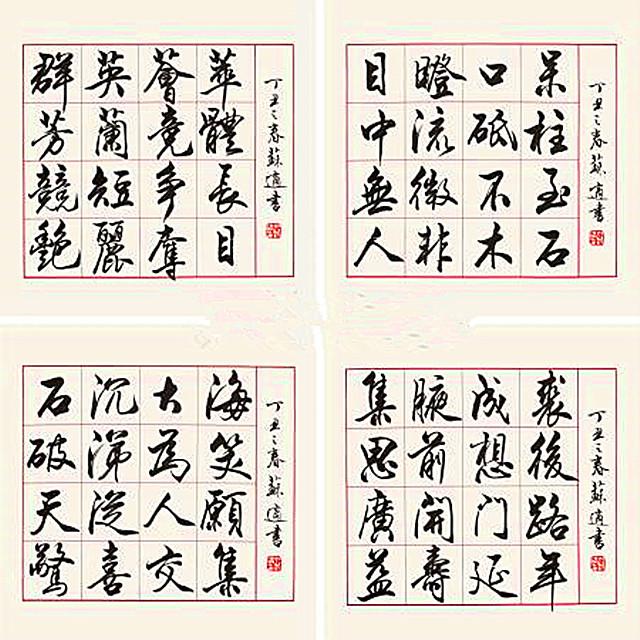 群英薈萃
芳蘭竟體
競短爭長
艷麗奪目
丁丑之春蘇適書
目瞪口呆
中流砥柱
無微不至
人非木石
丁丑之春蘇適書
石沉大海
破涕為笑
天從人願
驚喜交集
丁丑之春蘇適書
集腋成裘
思前想後
廣開門路
益壽延年
丁丑之春蘇適書